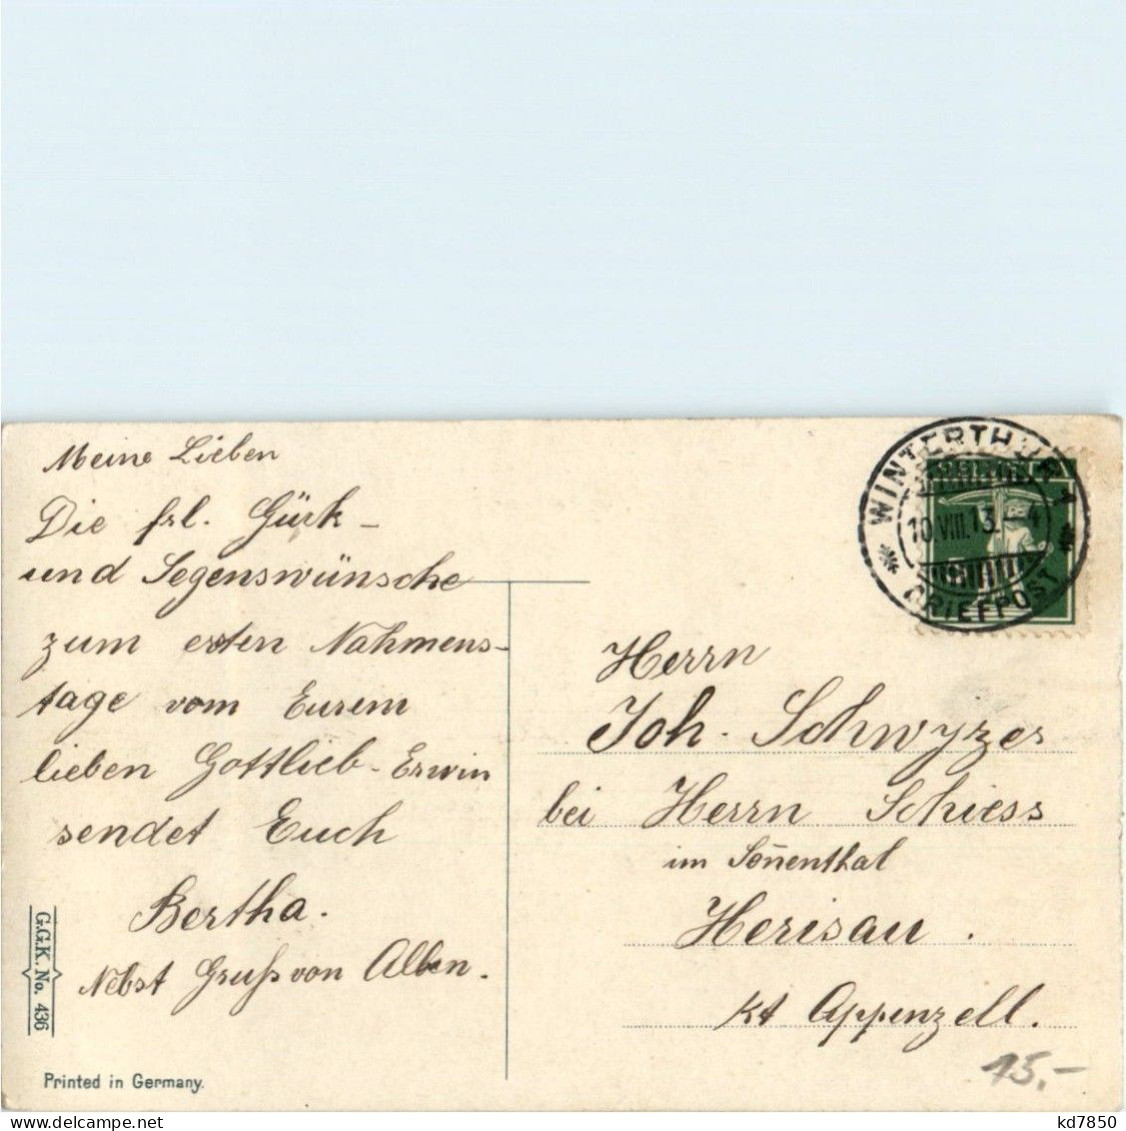 Meine Lieben
Die frl. Gürk-
und Segenswünsche
zum ersten Nahmens-
tage vom Eurem
lieben Gottlieb-Erwin
sendet Euch
Bertha.
Nebst Gruß von Allen.
G.G.K. No. 436
Printed in Germany.
WINTERTHUR
10.VIII.13.
BRIEFPOST
Herrn
Joh. Schwyzer
bei Herrn Schiess
im Soñenthal
Herisau.
kt Appenzell.
15.-
kd7850